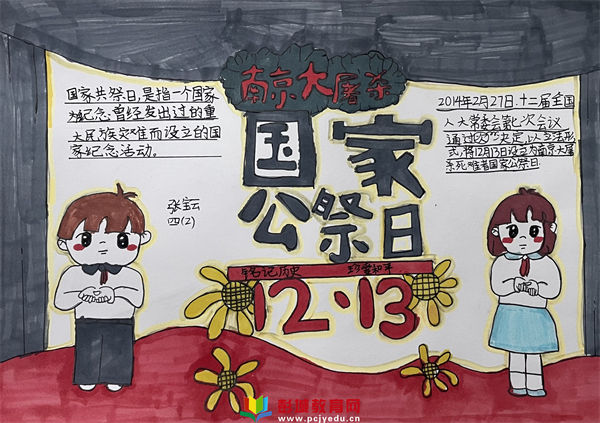 南京大屠杀
国家
公祭日
铭记历史 珍爱和平
12·13
国家共祭日,是指一个国家
为纪念曾经发出过的重
大民族灾难而设立的国
家纪念活动。
张宝云
四(2)
2014年2月27日.十二届全国
人大常委会第七次会议
通过
形式,将12月13日设立为南京大屠
杀死难者国家公祭日
彭城教育网
www.pcjyedu.cn